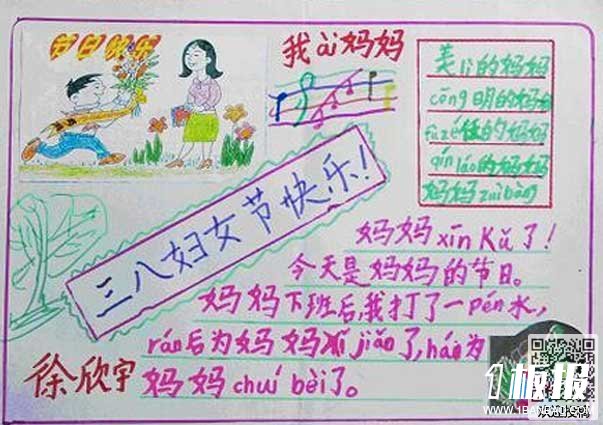 节日快乐
我ài妈妈
美lì的妈妈
cōng明的妈妈
fù zé任的妈妈
qín láo的妈妈
妈妈zuì bàng
三八妇女节快乐!
妈妈xīn Kǔ了!
今天是妈妈的节日。
妈妈下班后,我打了一pén水,
rán后为妈妈xǐ jiǎo了,hái为
妈妈chuí bèi了。
徐欣宇
1板报
WWW.1BANBAO.COM
欢迎投稿